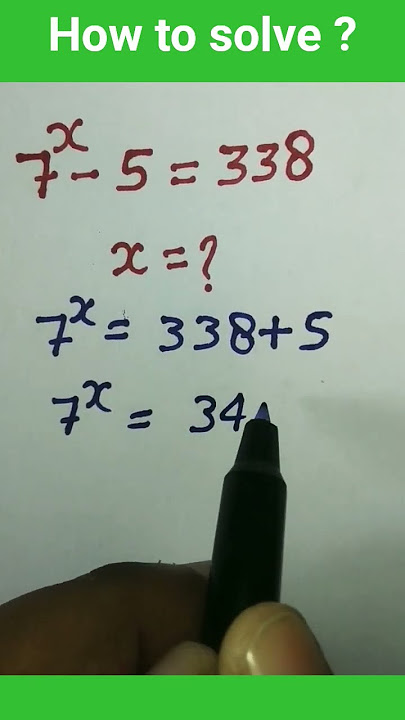 How to solve ?
7ˣ - 5 = 338
x = ?
7ˣ = 338 + 5
7ˣ = 34